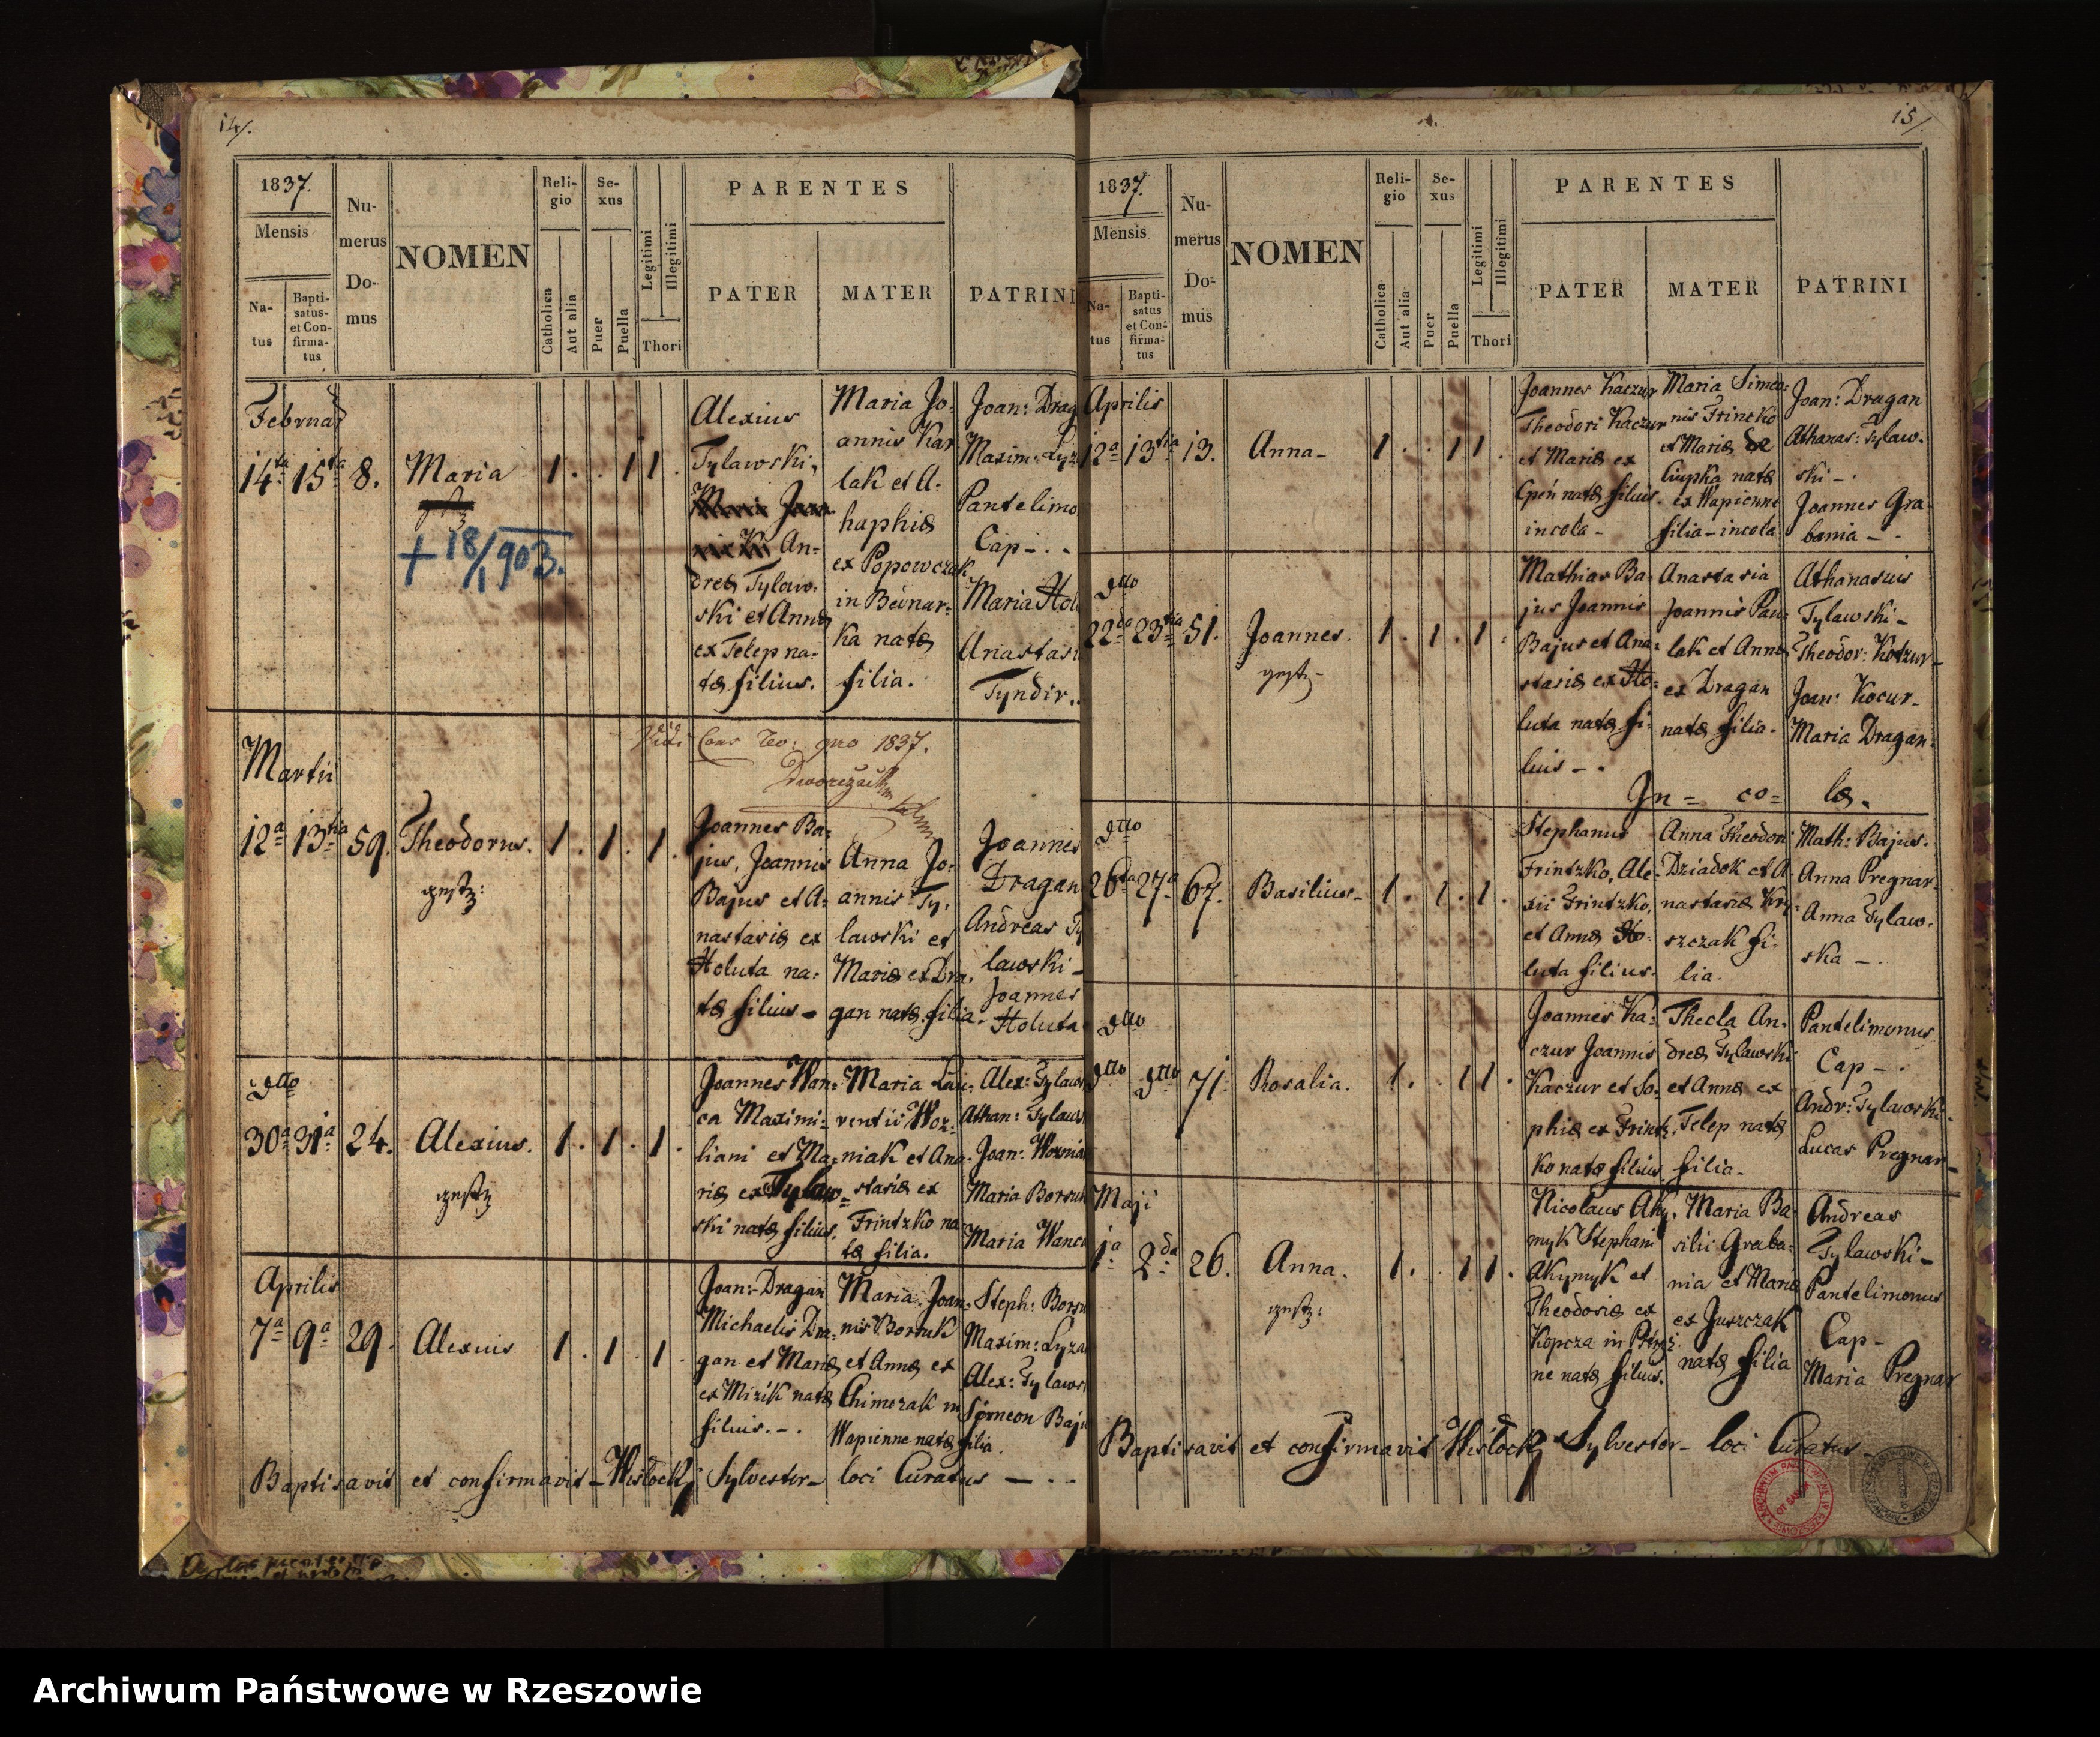 14/.
1837.
Mensis
Na-
tus
Bapti-
satus-
et Con-
firma-
tus
Nu-
merus
Do-
mus
NOMEN
Reli-
gio
Catholica
Aut alia
Se-
xus
Puer
Puella
Legitimi
Illegitimi
Thori
PARENTES
PATER
MATER
PATRINI
Februar
14ta 15ta 8. Maria 1. . 1 1 .
+ 18/1 903.
Alexius
Tylawski,
An-
dreæ Tylaw-
ski et Annæ
ex Telep na-
tæ filius.
Maria Jo-
annis Kar
lak et A-
haphiæ
ex Popowczak
in Bednar-
ka natæ
filia.
Joan: Drag
Maxim: Lyz
Pantelimo
Cap - . -
Maria Hol
Anastasi
Tyndir..
Martii
Vidi Cans. eo: pro 1837.
12a 13tia 59. Theodorus. 1 . 1 . 1 .
Joannes Ba-
jus, Joannis
Bajus et A-
nastasiæ ex
Holuta na-
tæ filius -
Anna Jo-
annis Ty-
lawski et
Mariæ ex Dra-
gan natæ filia.
Joannes
Dragan
Andreas Ty
lawski -
Joannes
Holuta
dtto
30a 31a 24. Alexius. 1 . 1 . 1 .
Joannes Wan-
ca Maximi-
liani et Ma-
riæ ex Tylaw-
ski natæ filius.
Maria Lau-
rentii Woz-
niak et Ana-
stasiæ ex
Frintzko na
tæ filia.
Alex: Tylaws
Athan: Tylaws
Joan: Woznia
Maria Borsuk
Maria Wanca
Aprilis
7a 9a 29. Alexius 1 . 1 . 1 .
Joan: Dragan
Michaelis Dra-
gan et Mariæ
ex Mizik natæ
filius. - .
Maria Joan-
nis Borsuk
et Annæ ex
Chimczak in
Wapienne natæ filia.
Steph: Borsu
Maxim: Lyza
Alex: Tylaws
Symeon Baju
Baptisavit et confirmavit - Wisłocky Sylvester - loci Curatus - . -
15/.
1837.
Mensis
Na-
tus
Bapti-
satus
et Con-
firma-
tus
Nu-
merus
Do-
mus
NOMEN
Reli-
gio
Catholica
Aut alia
Se-
xus
Puer
Puella
Legitimi
Illegitimi
Thori
PARENTES
PATER
MATER
PATRINI
Aprilis
12a 13tia 13. Anna - 1 . . 1 1 .
Joannes Kaczur
Theodori Kaczur
et Mariæ ex
natæ filius.
incola -
Maria Simeo-
nis Frincko
et Mariæ de
Ciupka natæ
ex Wapienne
filia - incola
Joan: Dragan
Athanas: Tylaw-
ski - .
Joannes Gra
bania - .
dtto
22da 23tia 51. Joannes. 1 . 1 . 1 .
Mathias Ba-
jus Joannis
Bajus et Ana-
stasiæ ex Ho-
luta natæ fi-
lius - .
Anastasia
Joannis Pau-
lak et Annæ
ex Dragan
natæ filia.
Athanasius
Tylawski -
Theodor: Kotzur -
Joan: Kocur -
Maria Dragan.
In = co = læ.
dtto
26ta 27a 67. Basilius - 1 . 1 . 1 .
Stephanus
Frintzko, Ale-
xii Frintzko,
et Annæ Ho-
luta filius.
Anna Theodori
Dziadek et A-
nastasiæ Kry-
szczak fi-
lia.
Math: Bajus.
Anna Pregnar.
Anna Tylaw-
ska - .
dtto
dtto dtto 71. Rosalia. 1 . . 1 1 .
Joannes Ka-
czur Joannis
Kaczur et So-
phiæ ex Frintz-
ko natæ filius.
Thecla An-
dreæ Tylawski
et Annæ ex
Telep natæ
filia -
Pantelimonus
Cap - .
Andr: Tylawski.
Lucas Pregnar -
Maji
1a 2da 26. Anna. 1 . . 1 1 .
Nicolaus Aky-
myk Stephani
Akymyk et
Theodosiæ ex
Kopcza in
ne natæ filius.
Maria Ba
silii Graba-
nia et Mariæ
ex Juszczak
natæ filia
Andreas
Tylawski -
Pantelimonus
Cap -
Maria Pregnar
Baptisavit et confirmavit Wisłocky Sylvester - loci Curatus -
Archiwum Państwowe w Rzeszowie